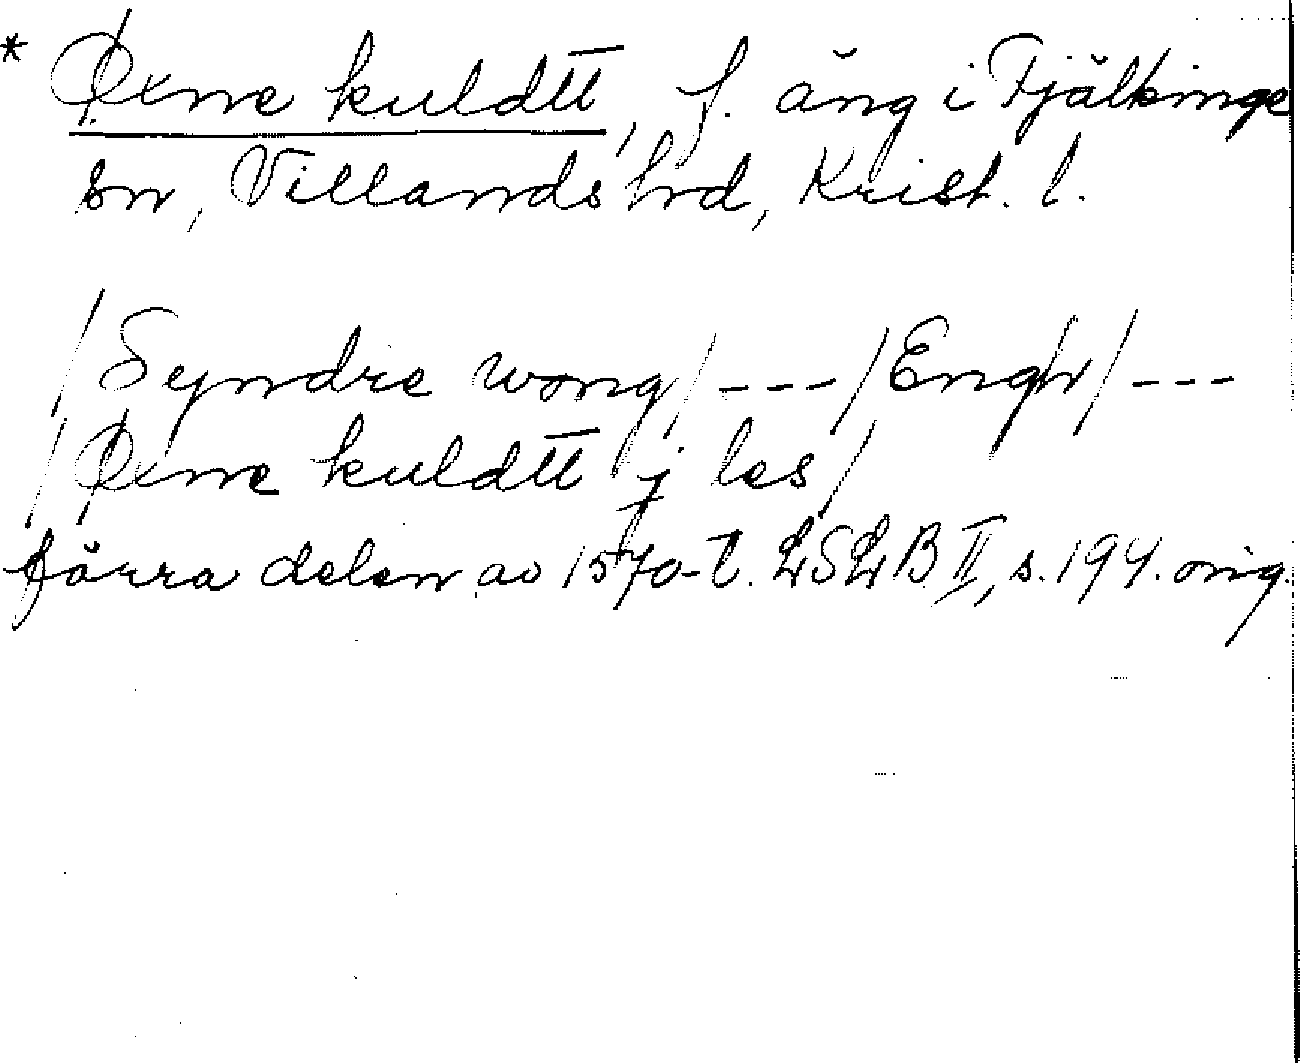 * Øxne kuldtt, f. äng i Fjälkinge
sn, Villands hrd, Krist. l.
/Syndre wong/ --- /Engh/ ---
/Øxne kuldtt j les/
förra delen av 1570-t. LSLB II, s. 194. orig.